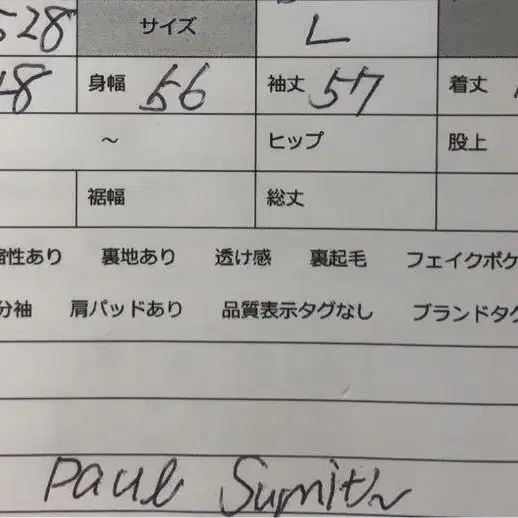 528 サイズ L
48 身幅 56 袖丈 57 着丈
～ ヒップ 股上
裾幅 総丈
縮性あり 裏地あり 透け感 裏起毛 フェイクポケ
分袖 肩パッドあり 品質表示タグなし ブランドタグ
Paul Sumith